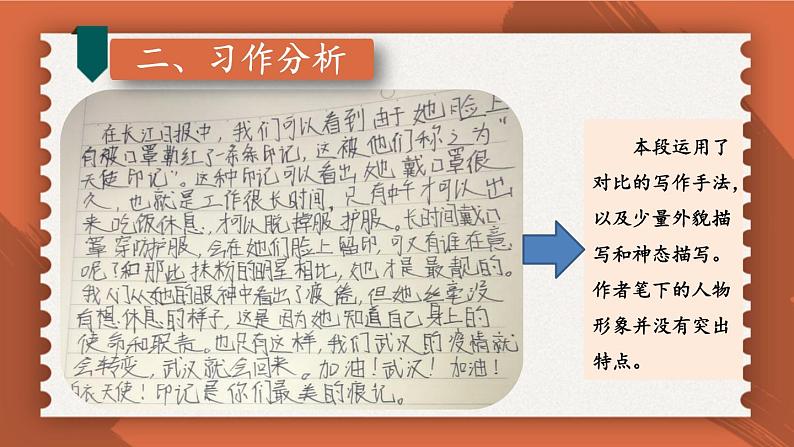 二、习作分析
在长江日报中，我们可以看到由于她脸上
有被口罩勒红了一条条印记，这被他们称之为“
天使印记”。这种印记可以看出她戴口罩很
久，也就是工作很长时间，只有中午才可以出
来吃饭休息，才可以脱掉服护服。长时间戴口
罩穿防护服，会在她们脸上留印，可又有谁在意
呢？和那些抹粉的明星相比，她才是最靓的。
我们从她的眼神中看出了疲倦，但她丝毫没
有想休息的样子，这是因为她知道自己身上的
使命和职责。也只有这样，我们武汉的疫情就
会转变，武汉就会回来。加油！武汉！加油！
白衣天使！印记是你们最美的痕记。
本段运用了
对比的写作手法，
以及少量外貌描
写和神态描写。
作者笔下的人物
形象并没有突出
特点。